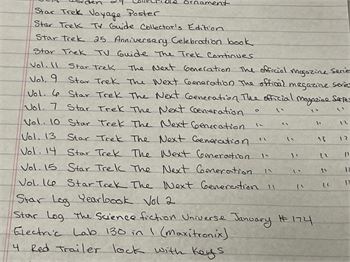 Collectible ornament
Star Trek Voyage Poster
Star Trek TV Guide Collector's Edition
Star Trek 25 Anniversary Celebration book
Star Trek TV Guide The Trek Continues
Vol. 11 Star Trek The Next Generation The official magazine Serie
Vol. 9 Star Trek The Next Generation The official magazine serie
Vol. 6 Star Trek The Next Generation The official magazine Series
Vol. 7 Star Trek The Next Generation " " " "
Vol. 10 Star Trek The Next Generation " " " "
Vol. 13 Star Trek The Next Generation " " " "
Vol. 14 Star Trek The Next Generation " " " "
Vol. 15 Star Trek The Next Generation " " " "
Vol. 16 Star Trek The Next Generation " " " "
Star Log Yearbook Vol 2
Star Log The Science fiction Universe January # 174
Electric Lab 130 in 1 (Maxitronix)
4 Red Trailer lock with Keys